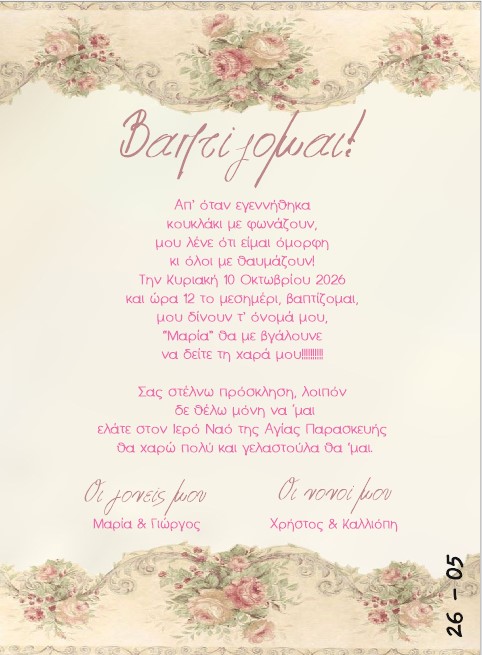 Βαπτίζομαι!
Απ' όταν εγεννήθηκα
κουκλάκι με φωνάζουν,
μου λένε ότι είμαι όμορφη
κι όλοι με θαυμάζουν!
Την Κυριακή 10 Οκτωβρίου 2026
και ώρα 12 το μεσημέρι, βαπτίζομαι,
μου δίνουν τ' όνομά μου,
"Μαρία" θα με βγάλουνε
να δείτε τη χαρά μου!!!!!!!!!!
Σας στέλνω πρόσκληση, λοιπόν
δε θέλω μόνη να 'μαι
ελάτε στον Ιερό Ναό της Αγίας Παρασκευής
θα χαρώ πολύ και γελαστούλα θα 'μαι.
Οι γονείς μου
Μαρία & Γιώργος
Οι νονοί μου
Χρήστος & Καλλιόπη
26 - 05